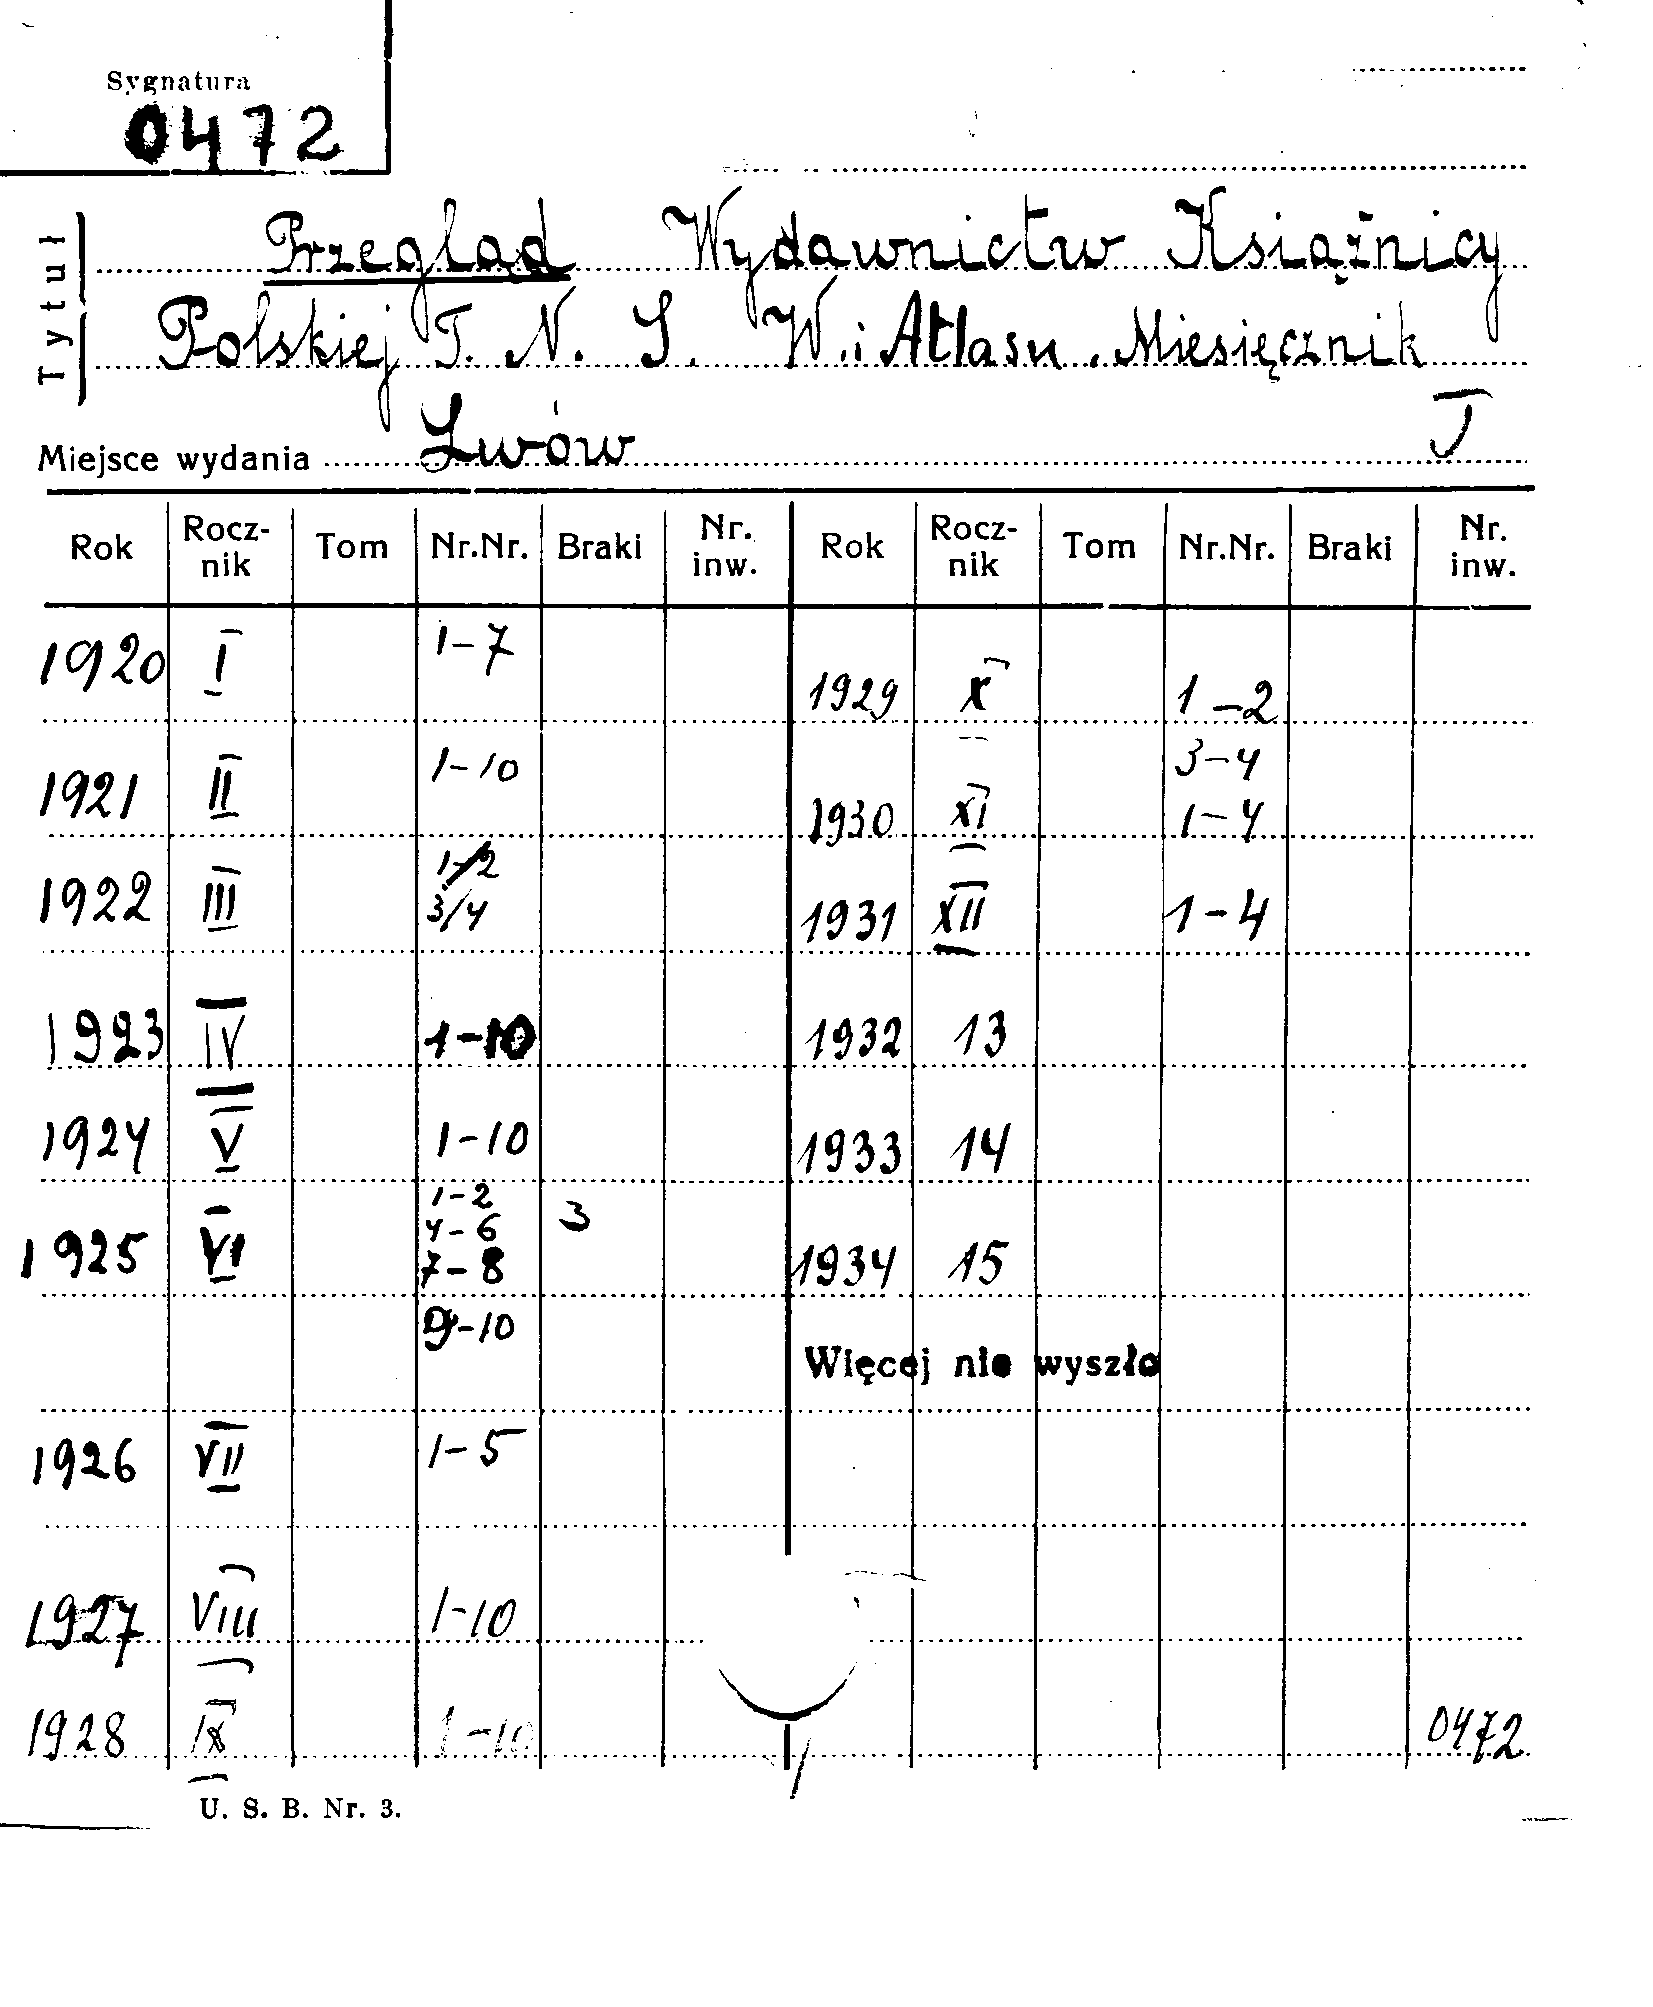 Sygnatura
0472
Tytuł
Przegląd Wydawnictw Książnicy
Polskiej T. N. S. W. i Atlasu. Miesięcznik
Miejsce wydania Lwów
Rok Rocz-nik Tom Nr.Nr. Braki Nr. inw. Rok Rocz-nik Tom Nr.Nr. Braki Nr. inw.
1920 I 1-7 1929 X 1-2
3-4
1921 II 1-10 1930 XI 1-4
1922 III 1-2
3/4 1931 XII 1-4
1923 IV 1-10 1932 13
1924 V 1-10 1933 14
1925 VI 1-2
4-6 3
7-8 1934 15
9-10
Więcej nie wyszło
1926 VII 1-5
1927 VIII 1-10
1928 IX 1-10 0472
U. S. B. Nr. 3.